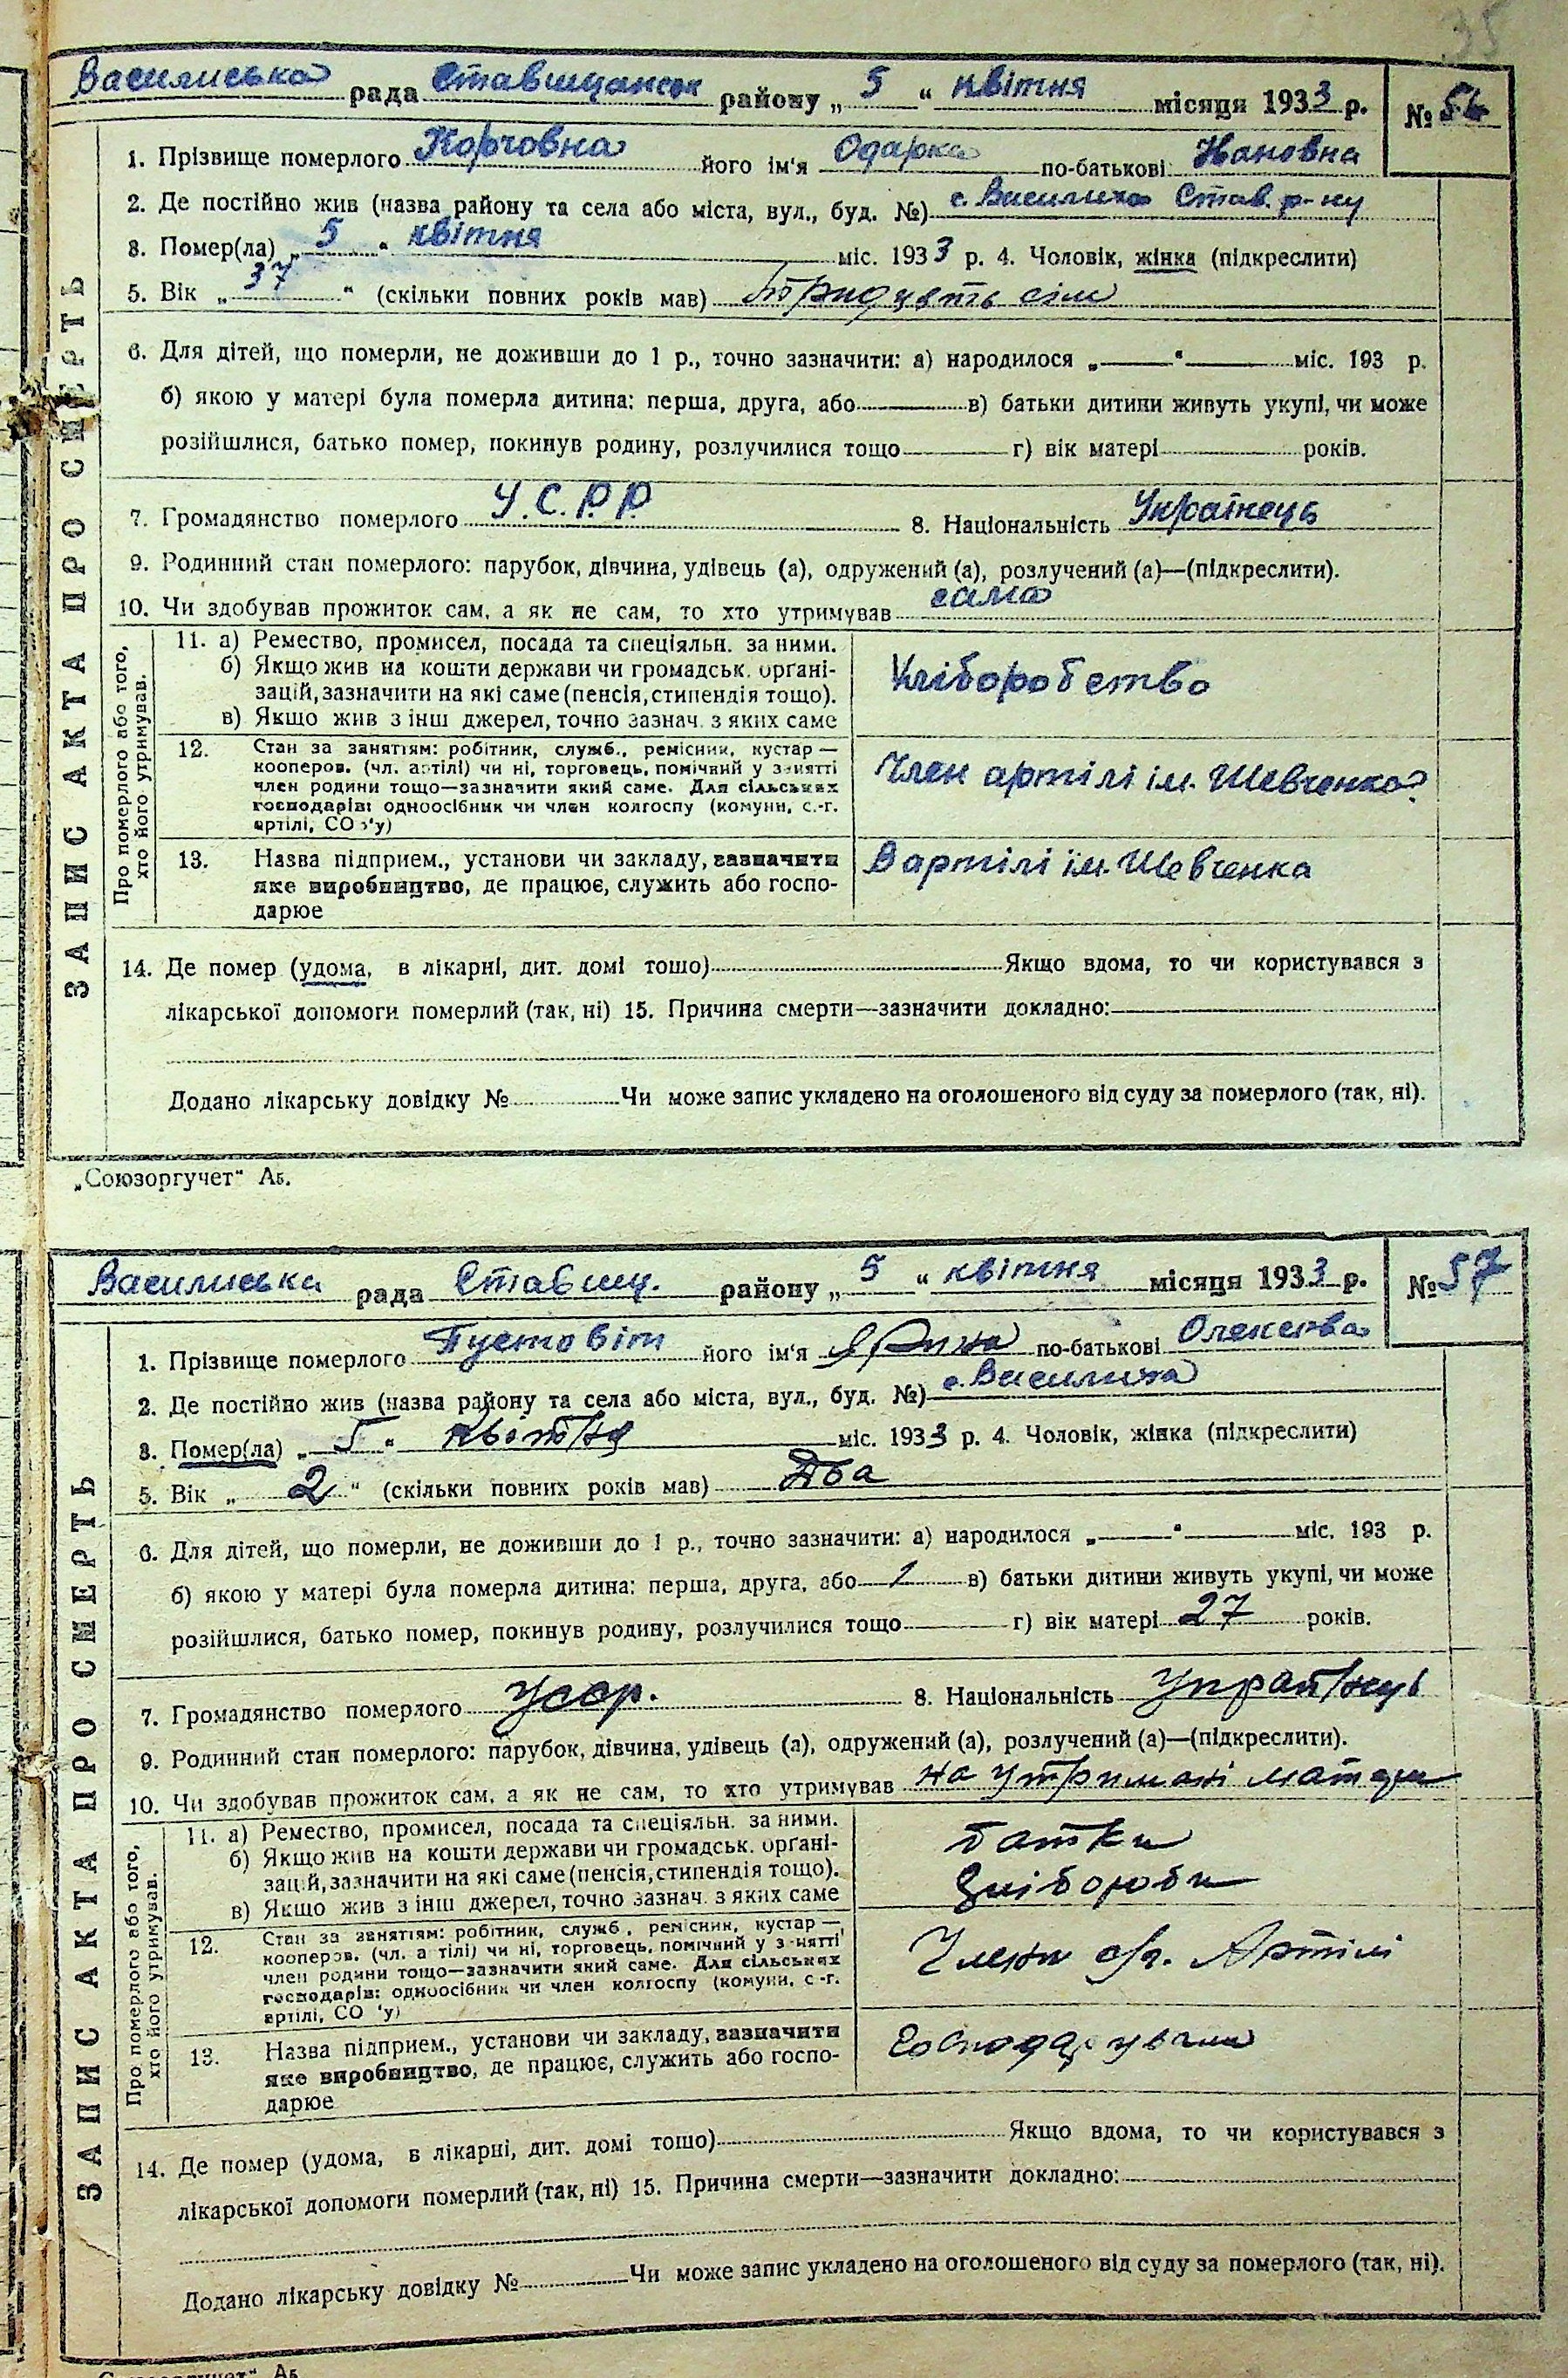 35
Василиська рада Ставищанськ району „ 5 “ квітня місяця 1933 р. № 54
ЗАПИС АКТА ПРО СМЕРТЬ
1. Прізвище померлого Корчовна його ім'я Одарка по-батькові
2. Де постійно жив (назва району та села або міста, вул., буд. №) с. Василиха Став. р-ну
3. Помер(ла) „ 5 “ квітня міс. 1933 р. 4. Чоловік, жінка (підкреслити)
5. Вік „ 37 “ (скільки повних років мав) тридцять сім
6. Для дітей, що померли, не доживши до 1 р., точно зазначити: а) народилося „—“— міс. 193 р.
б) якою у матері була померла дитина: перша, друга, або — в) батьки дитини живуть укупі, чи може
розійшлися, батько помер, покинув родину, розлучилися тощо — г) вік матері — років.
7. Громадянство померлого У.С.Р.Р. 8. Національність Українець
9. Родинний стан померлого: парубок, дівчина, удівець (а), одружений (а), розлучений (а)—(підкреслити).
10. Чи здобував прожиток сам, а як не сам, то хто утримував сама
Про померлого або того, хто його утримував.
11. а) Ремество, промисел, посада та спеціяльн. за ними.
б) Якщо жив на кошти держави чи громадськ. орґані-
зацій, зазначити на які саме (пенсія, стипендія тощо).
в) Якщо жив з інш джерел, точно зазнач. з яких саме
Хліборобство
12. Стан за заняттям: робітник, служб., ремісник, кустар —
кооперов. (чл. артілі) чи ні, торговець, помічний у занятті
член родини тощо—зазначити який саме. Для сільських
господарів: одноосібник чи член колгоспу (комуни, с.-г.
артілі, СОЗ'у)
Член артілі ім. Шевченка
13. Назва підприєм., установи чи закладу, зазначити
яке виробництво, де працює, служить або госпо-
дарює
В артілі ім. Шевченка
14. Де помер (удома, в лікарні, дит. домі тощо) Якщо вдома, то чи користувався з
лікарської допомоги померлий (так, ні) 15. Причина смерти—зазначити докладно:
Додано лікарську довідку № Чи може запис укладено на оголошеного від суду за померлого (так, ні).
„Союзоргучет“ А5.
Василиська рада Ставищ. району „ 5 “ квітня місяця 1933 р. № 57
ЗАПИС АКТА ПРО СМЕРТЬ
1. Прізвище померлого Пустовіт його ім'я Ярина по-батькові Олексєва
2. Де постійно жив (назва району та села або міста, вул., буд. №) с. Василиха
3. Помер(ла) „ 5 “ квітня міс. 1933 р. 4. Чоловік, жінка (підкреслити)
5. Вік „ 2 “ (скільки повних років мав) Два
6. Для дітей, що померли, не доживши до 1 р., точно зазначити: а) народилося „—“— міс. 193 р.
б) якою у матері була померла дитина: перша, друга, або 1 в) батьки дитини живуть укупі, чи може
розійшлися, батько помер, покинув родину, розлучилися тощо — г) вік матері 27 років.
7. Громадянство померлого Усср. 8. Національність Українець
9. Родинний стан померлого: парубок, дівчина, удівець (а), одружений (а), розлучений (а)—(підкреслити).
10. Чи здобував прожиток сам, а як не сам, то хто утримував на утримані матери
Про померлого або того, хто його утримував.
11. а) Ремество, промисел, посада та спеціяльн. за ними.
б) Якщо жив на кошти держави чи громадськ. орґані-
зацій, зазначити на які саме (пенсія, стипендія тощо).
в) Якщо жив з інш джерел, точно зазнач. з яких саме
батки
Хлібороби
12. Стан за заняттям: робітник, служб., ремісник, кустар —
кооперов. (чл. артілі) чи ні, торговець, помічний у занятті
член родини тощо—зазначити який саме. Для сільських
господарів: одноосібник чи член колгоспу (комуни, с.-г.
артілі, СОЗ'у)
Члени с/г. Артілі
13. Назва підприєм., установи чи закладу, зазначити
яке виробництво, де працює, служить або госпо-
дарює
14. Де помер (удома, в лікарні, дит. домі тощо) Якщо вдома, то чи користувався з
лікарської допомоги померлий (так, ні) 15. Причина смерти—зазначити докладно:
Додано лікарську довідку № Чи може запис укладено на оголошеного від суду за померлого (так, ні).
„Союзоргучет“ А5